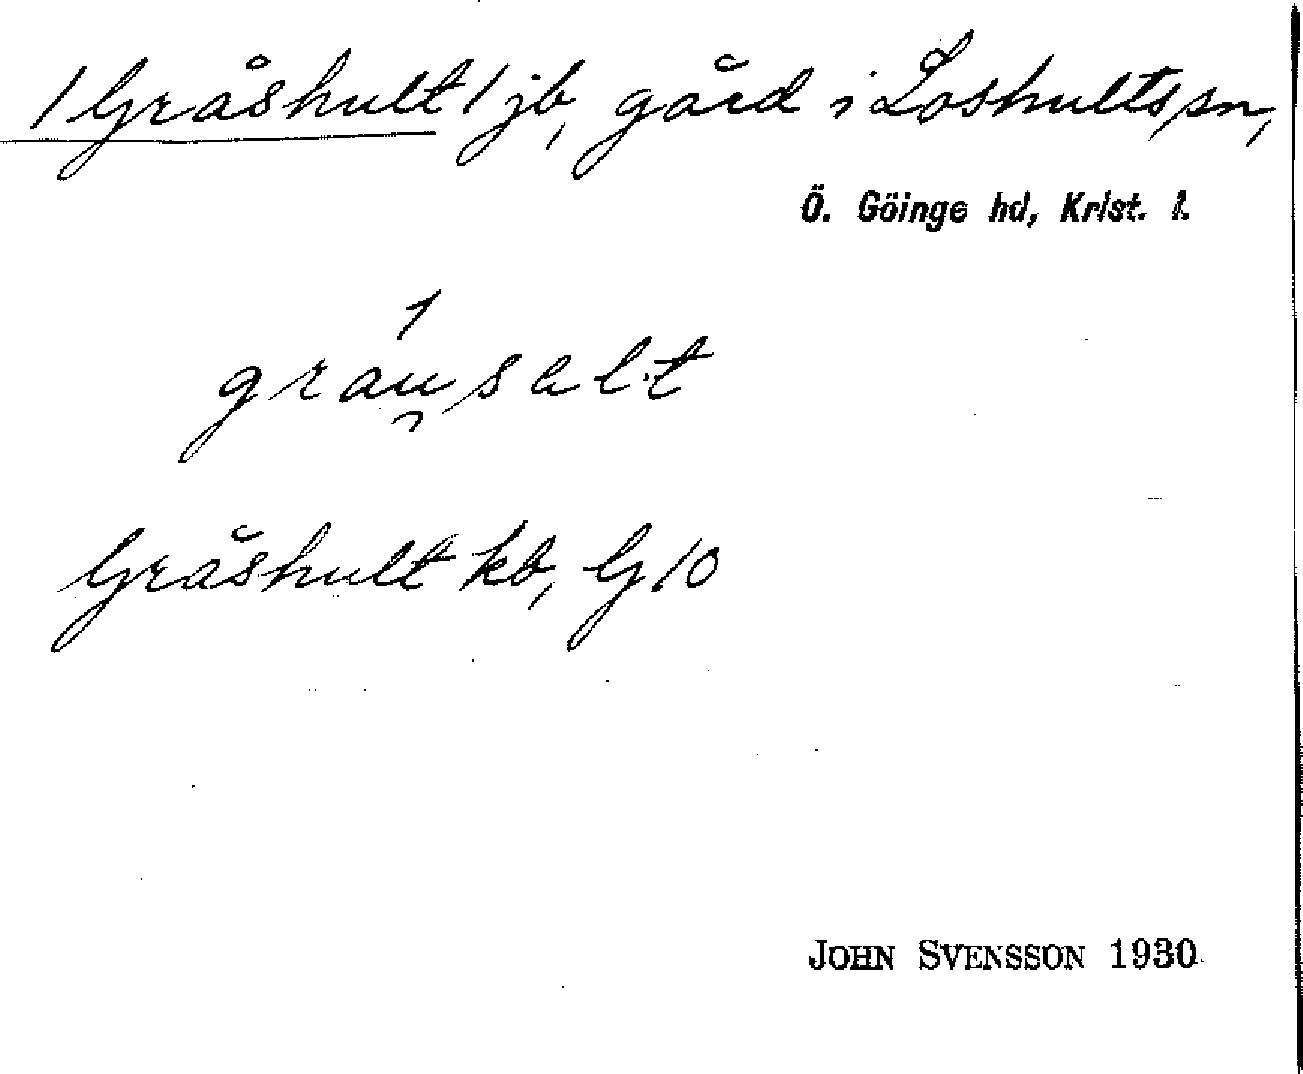 /Gråshult/ jb, gård i Loshults sn,
Ö. Göinge hd, Krist. l.
gräu̯salt
Gråshult kb, G10
JOHN SVENSSON 1930